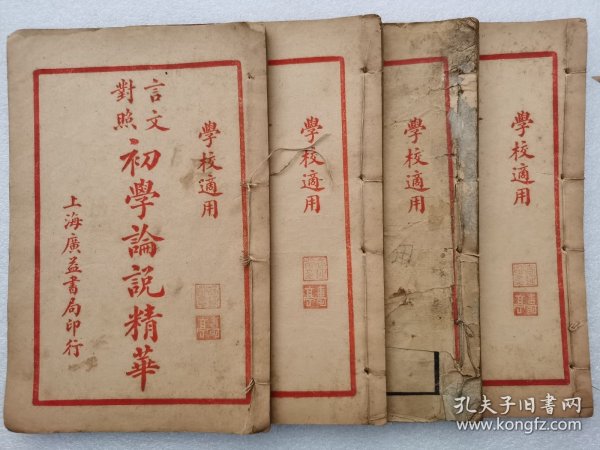 學校適用
言文
對照
初學論説精華
上海廣益書局印行
學校適用
學校適用
學校適用
孔夫子旧书网
www.kongfz.com